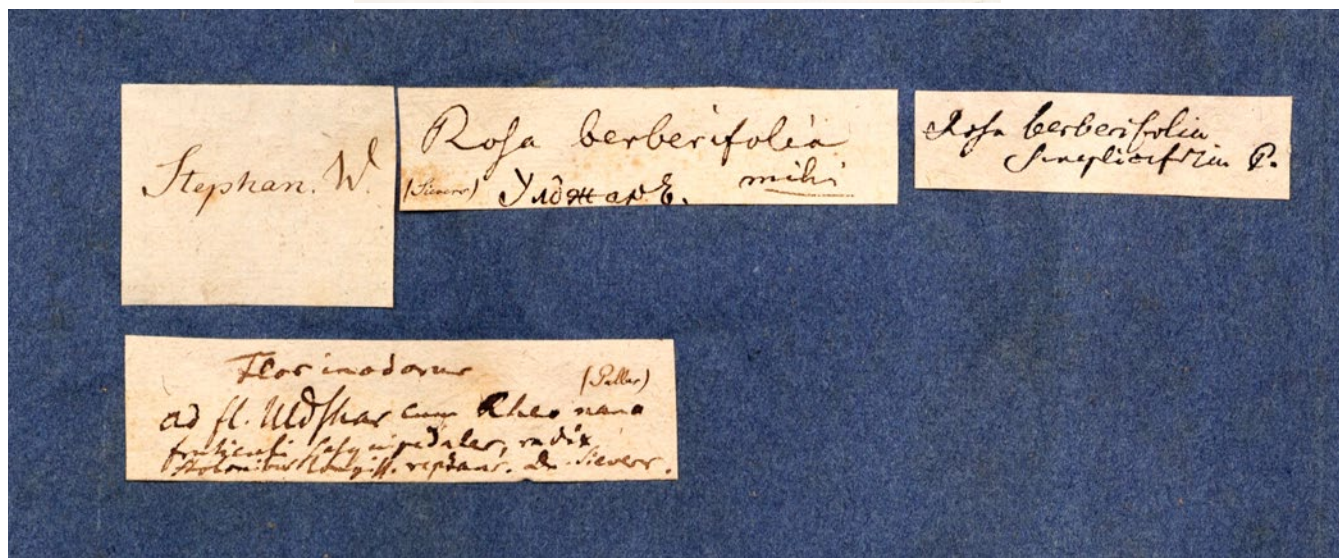 Stephan. W.
Rosa berberifolia
mihi
(Sievers) Улджарѣ.
Rosa berberifolia
simplicifolia P.
Flos inodorus
(Pallas)
ad fl. Uldshar cum Rheo nano
fruticuli sesquipedales, radix
stolonibus longiss. reptans. D. Sievers.